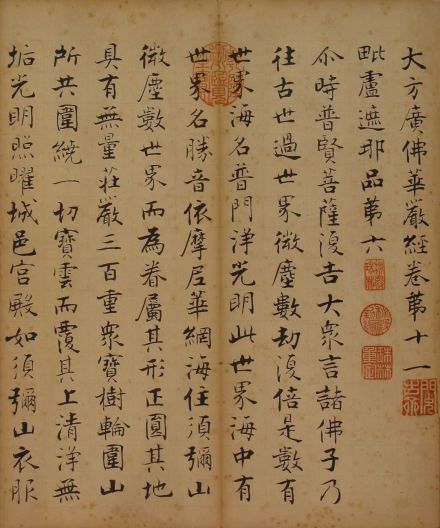 大方廣佛華嚴經卷第十一
毗盧遮那品第六
尒時普賢菩薩復告大眾言諸佛子乃
往古世過世界微塵數劫復倍是數有
世界海名普門淨光明此世界海中有
世界名勝音依摩尼華網海住須彌山
微塵數世界而為眷屬其形正圓其地
具有無量莊嚴三百重眾寶樹輪圍山
所共圍繞一切寶雲而覆其上清淨無
垢光明照曜城邑宮殿如須彌山衣服